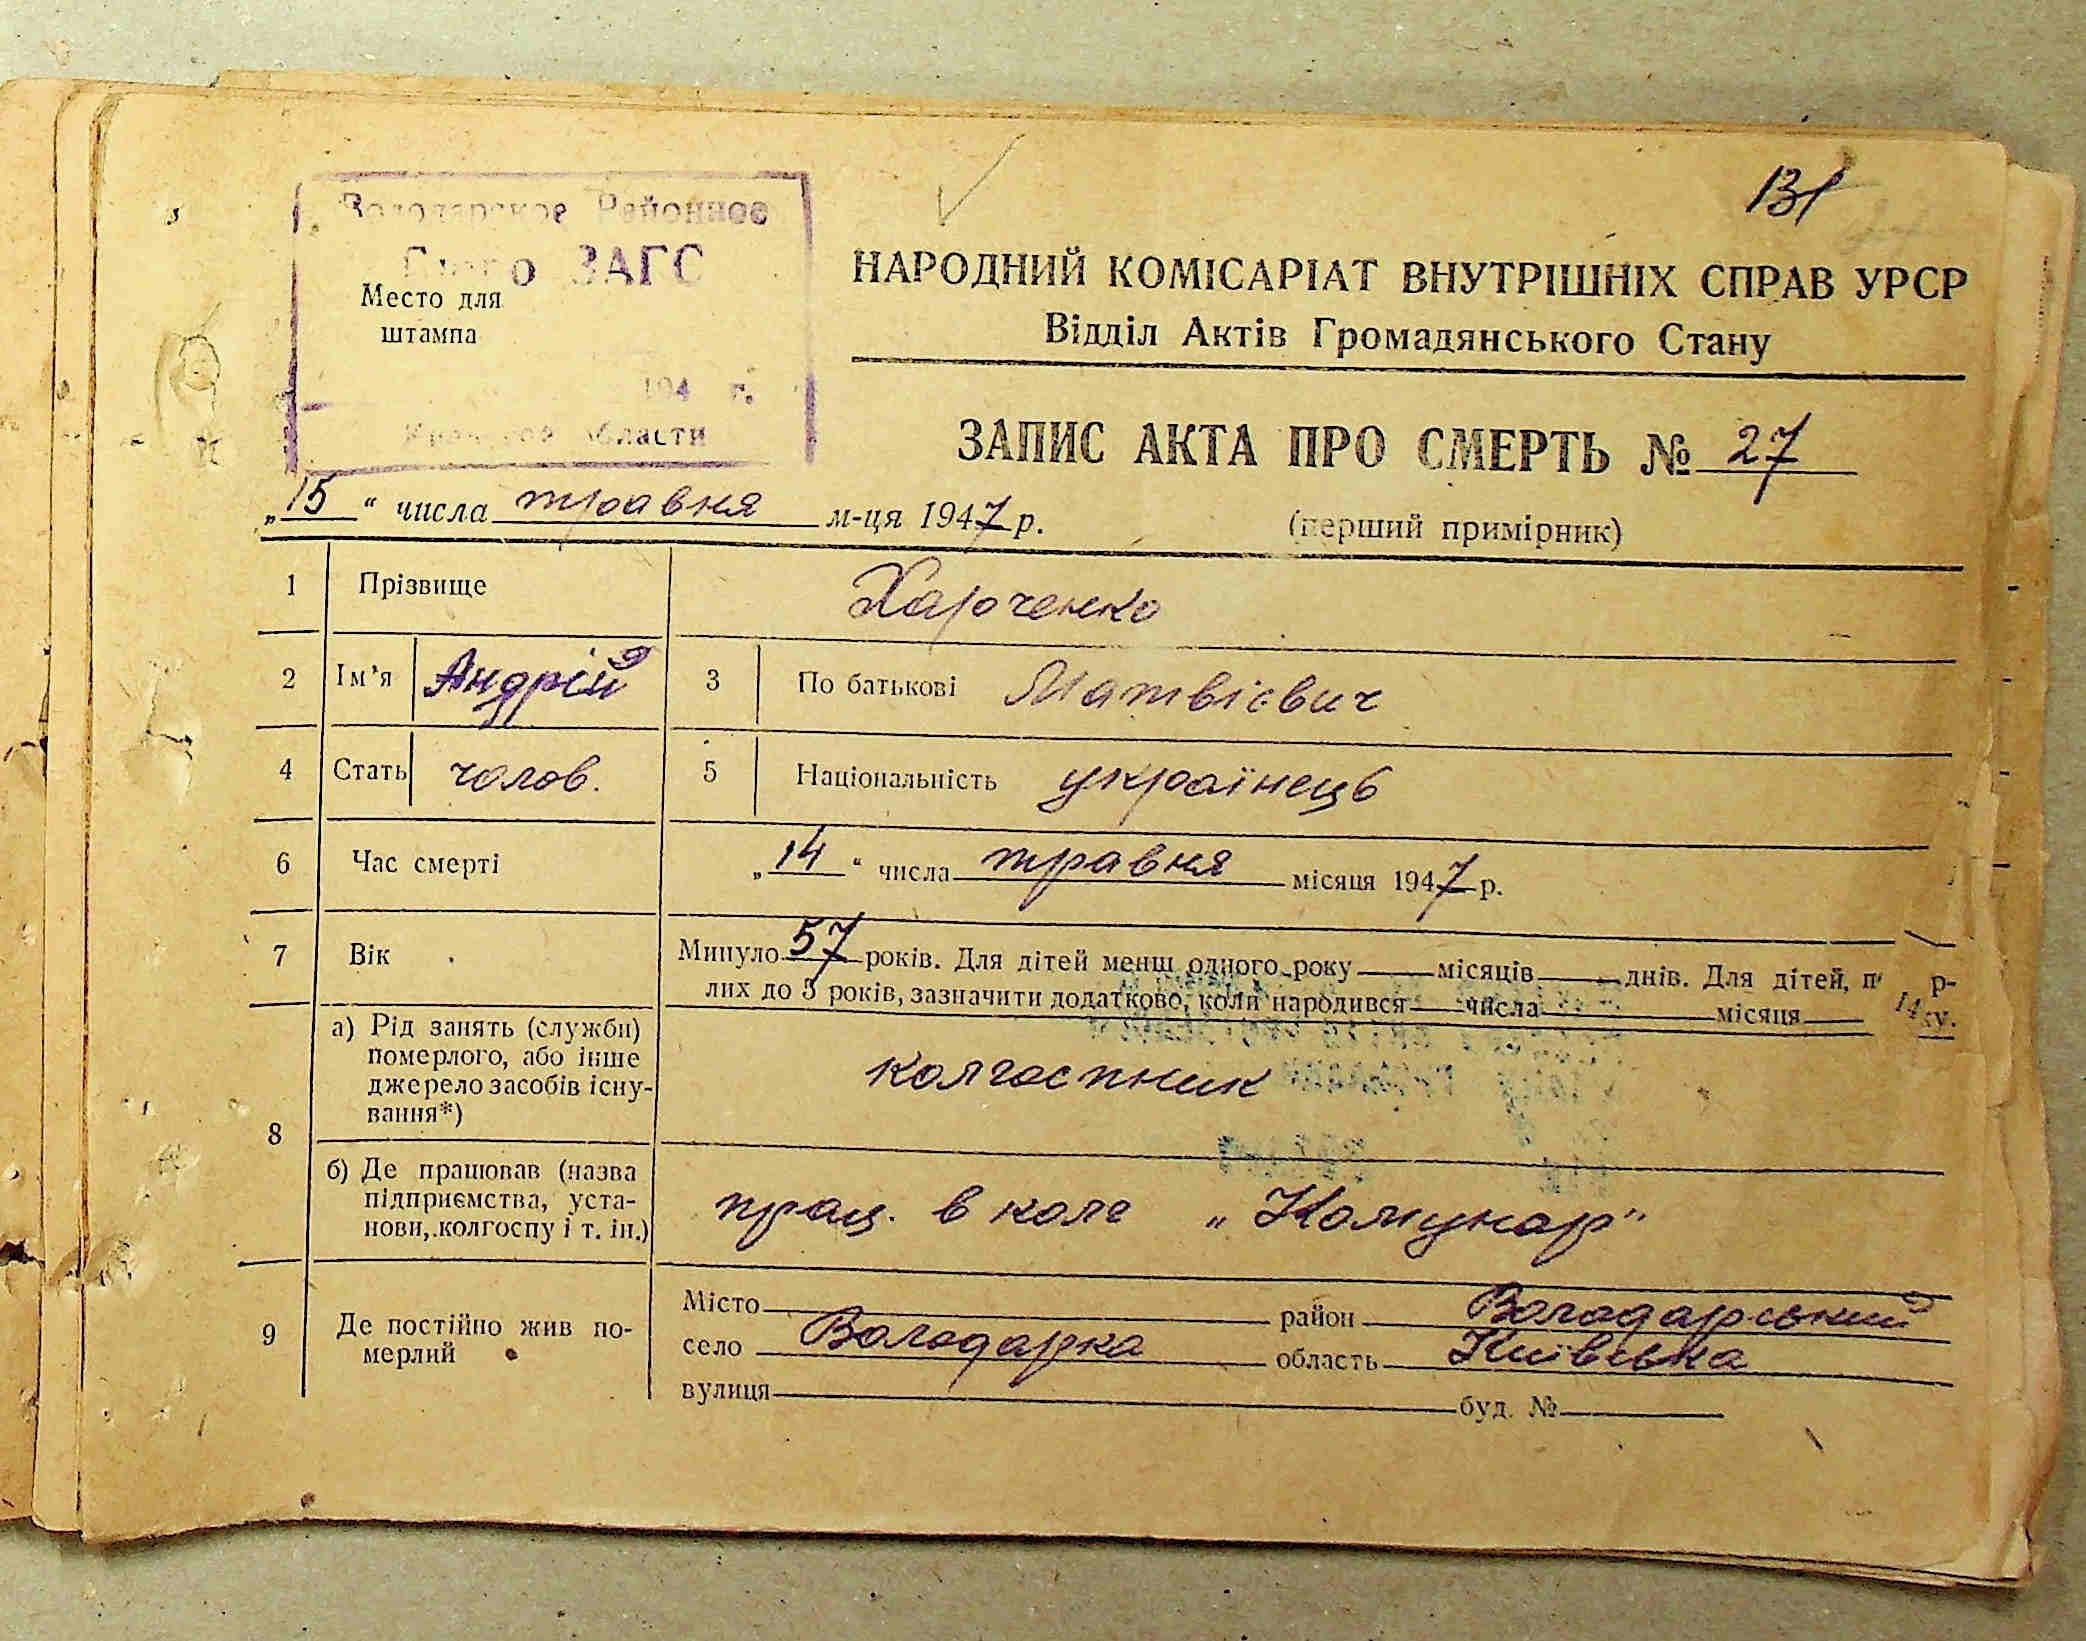 131
Володарское Районное
Бюро ЗАГС
Место для
штампа
194 г.
области
НАРОДНИЙ КОМІСАРІАТ ВНУТРІШНІХ СПРАВ УРСР
Відділ Актів Громадянського Стану
ЗАПИС АКТА ПРО СМЕРТЬ № 27
„15“ числа травня м-ця 1947 р. (перший примірник)
1 Прізвище Харченко
2 Ім’я Андрій 3 По батькові Матвієвич
4 Стать чолов. 5 Національність українець
6 Час смерті „14“ числа травня місяця 1947 р.
7 Вік Минуло 57 років. Для дітей менш одного року місяців днів. Для дітей,
лих до 5 років, зазначити додатково, коли народився числа місяця
8 а) Рід занять (служби)
померлого, або інше
джерело засобів існу-
вання*)
колгоспник
б) Де працював (назва
підприємства, уста-
нови, колгоспу і т. ін.)
прац. в колг „Комунар”
9 Де постійно жив по-
мерлий
Місто район Володарський
село Володарка область Київська
вулиця буд. №